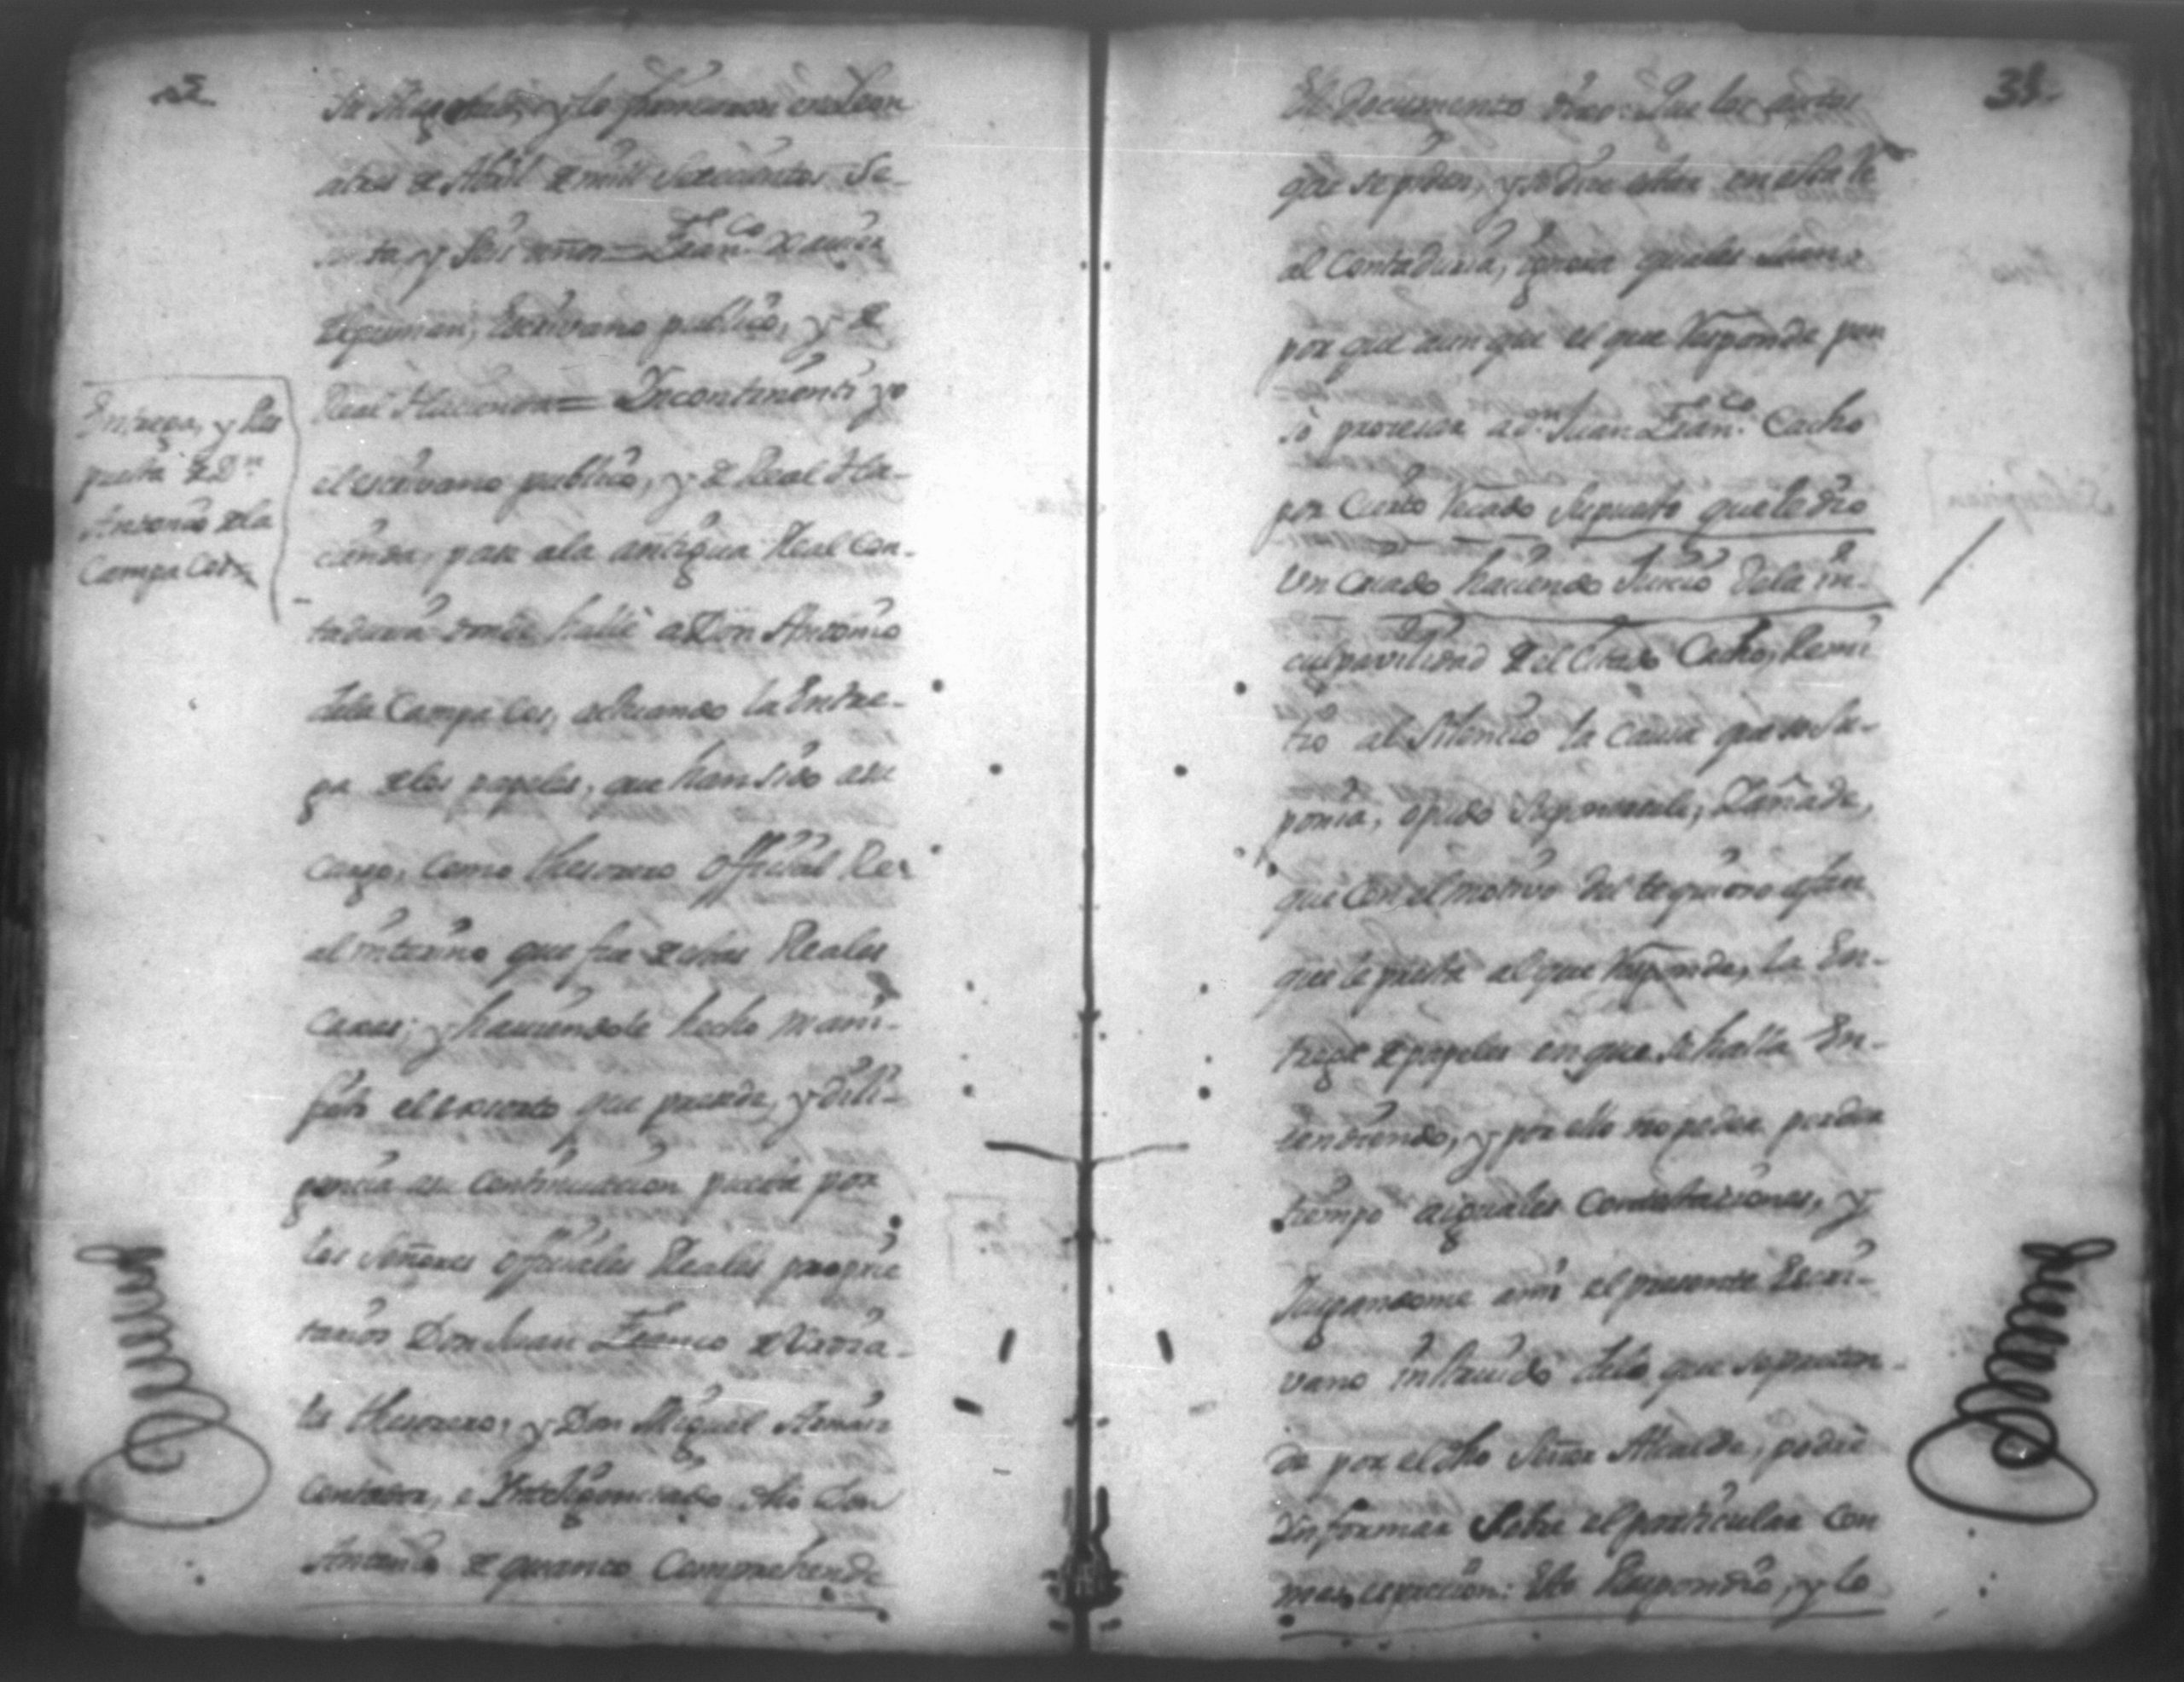 Su Magestad, y lo firmaron en Leon
a tres de Abril de mill Setecientos Se-
senta, y Seis años = Fran.co Xavier
Escrivano publico, y de
Real Hacienda = Incontinenti yo
el escrivano publico, y de Real Ha-
cienda, pase a la antigua Real Con-
taduria donde hallè a Don Antonio
dela Campa Cos, actuando la Entre-
ga de los papeles, que han sido a su
cargo, como thesorero Official Re-
al interino que fue de estas Reales
Caxas; y haciendole hecho mani-
fiesto el escripto que precede, y dili-
gencia a su continuacion puesta por
los Señores Officiales Reales proprie
tarios Don Juan Franco
thesorero, y Don Miguel
Contador, e Inteligenciado dho Don
Antonio de quanto Comprehende
Entrega, y Res
puesta de Dn
Antonio de la
Campa Cos
38
El documento dixo: Que los autos
que se piden, y se dice estar en esta Re
al Contaduria, ignora quales sean,
por que aun que el que Responde pen
sò procesar a dn Juan Fran.co Cacho
por Cierto Recado Supuesto que le dio
Un Criado haciendo Juicio dela in-
culpavilidad de el Citado Cacho, Remi
tio al Silencio la Causa que se Su-
ponia, o pudo Suponersele; y añade,
que con el motivo del
que le presta al que Responde, la En-
trega de papeles en que se halla En-
tendiendo, y por ello no poder perder
tiempo a iguales Contestaciones, y
Juzgandome a mi el presente Escri-
vano instruido delo que se preten-
de por el dho Señor Alcalde, podrè
Informar Sobre el particular con
mas expresion: Esto Respondio, y lo